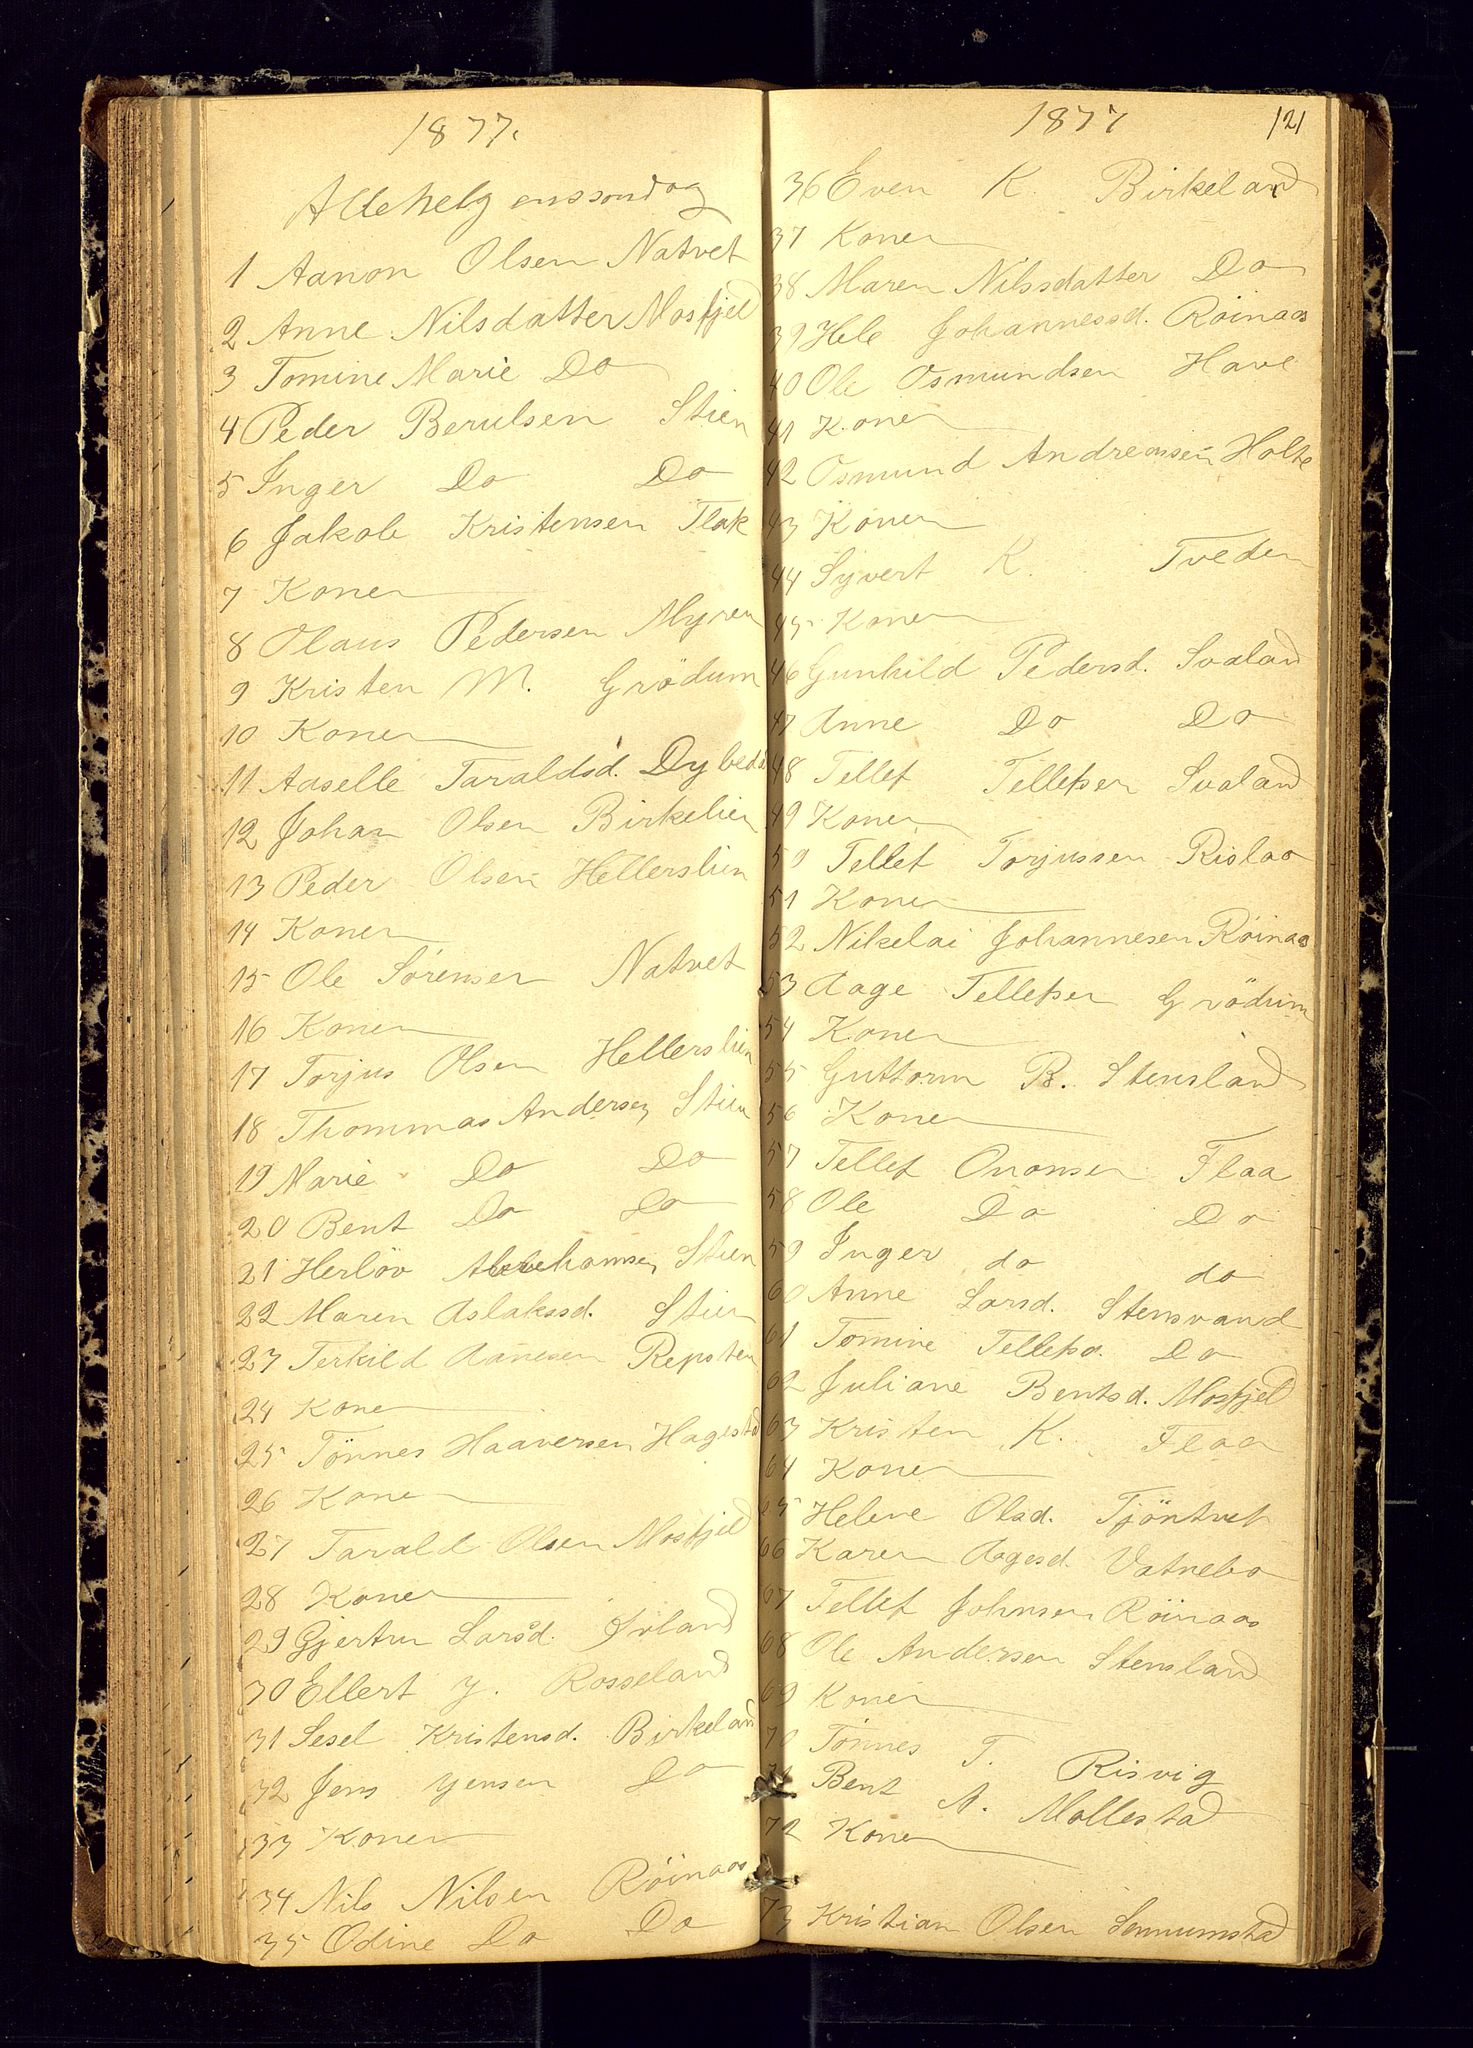 1877.
Allehelgenssondag
1 Aanon Olsen Natvet
2 Anne Nilsdatter Mosfjeld
3 Tomine Marie Do
4 Peder Berulsen Stien
5 Inger Do Do
6 Jakob Kristensen Flak
7 Konen
8 Olaus Pedersen Myren
9 Kristen M. Grödum
10 Konen
11 Aaselle Taraldsd. Dybedal
12 Johan Olsen Birkelien
13 Peder Olsen Hellerslien
14 Konen
15 Ole Sörensen Natvet
16 Konen
17 Torjus Olsen Hellerslien
18 Thommas Andersen Stien
19 Marie Do Do
20 Bent Do Do
21 Herlöv Stien
22 Maren Aslakssd. Stien
23 Terkild Aanesen Repsten
24 Konen
25 Tönnes Haaversen Hagestad
26 Konen
27 Tarald Olsen Mosfjeld
28 Konen
29 Gjertru Larsd.
30 Ellert J. Rosseland
31 Sesel Kristensd. Birkeland
32 Jens Jensen Do
33 Konen
34 Nils Nilsen Röinaas
35 Odine Do Do
1877
121
36 Even K. Birkeland
37 Konen
38 Maren Nilssdatter Do
39 Hele Johannessd. Röinaas
40 Ole Osmundsen Have
41 Konen
42 Osmund Andreassen Holte
43 Konen
44 Syvert K. Tveden
45 Konen
46 Gunhild Pedersd. Svaland
47 Anne Do Do
48 Tellef Tellefsen Svaland
49 Konen
50 Tellef Torjussen Rislaa
51 Konen
52 Nikelai Johannesen Röinaas
53 Aage Tellefsen Grödum
54 Konen
55 Guttorm B. Stensland
56 Konen
57 Tellef Omonsen Flaa
58 Ole Do Do
59 Inger do do
60 Anne Larsd. Stensvand
61 Tomine Tellefsd. Do
62 Juliane Bentsd. Mosfjeld
63 Kristen K. Flaa
64 Konen
65 Helene Olsd. Tjöntvet
66 Karen Aagesd. Vatnebo
67 Tellef Johnsen Röinaas
68 Ole Andersen Stensland
69 Konen
70 Tönnes T. Risvig
71 Bent A. Mollestad
72 Konen
73 Kristian Olsen Sennumstad